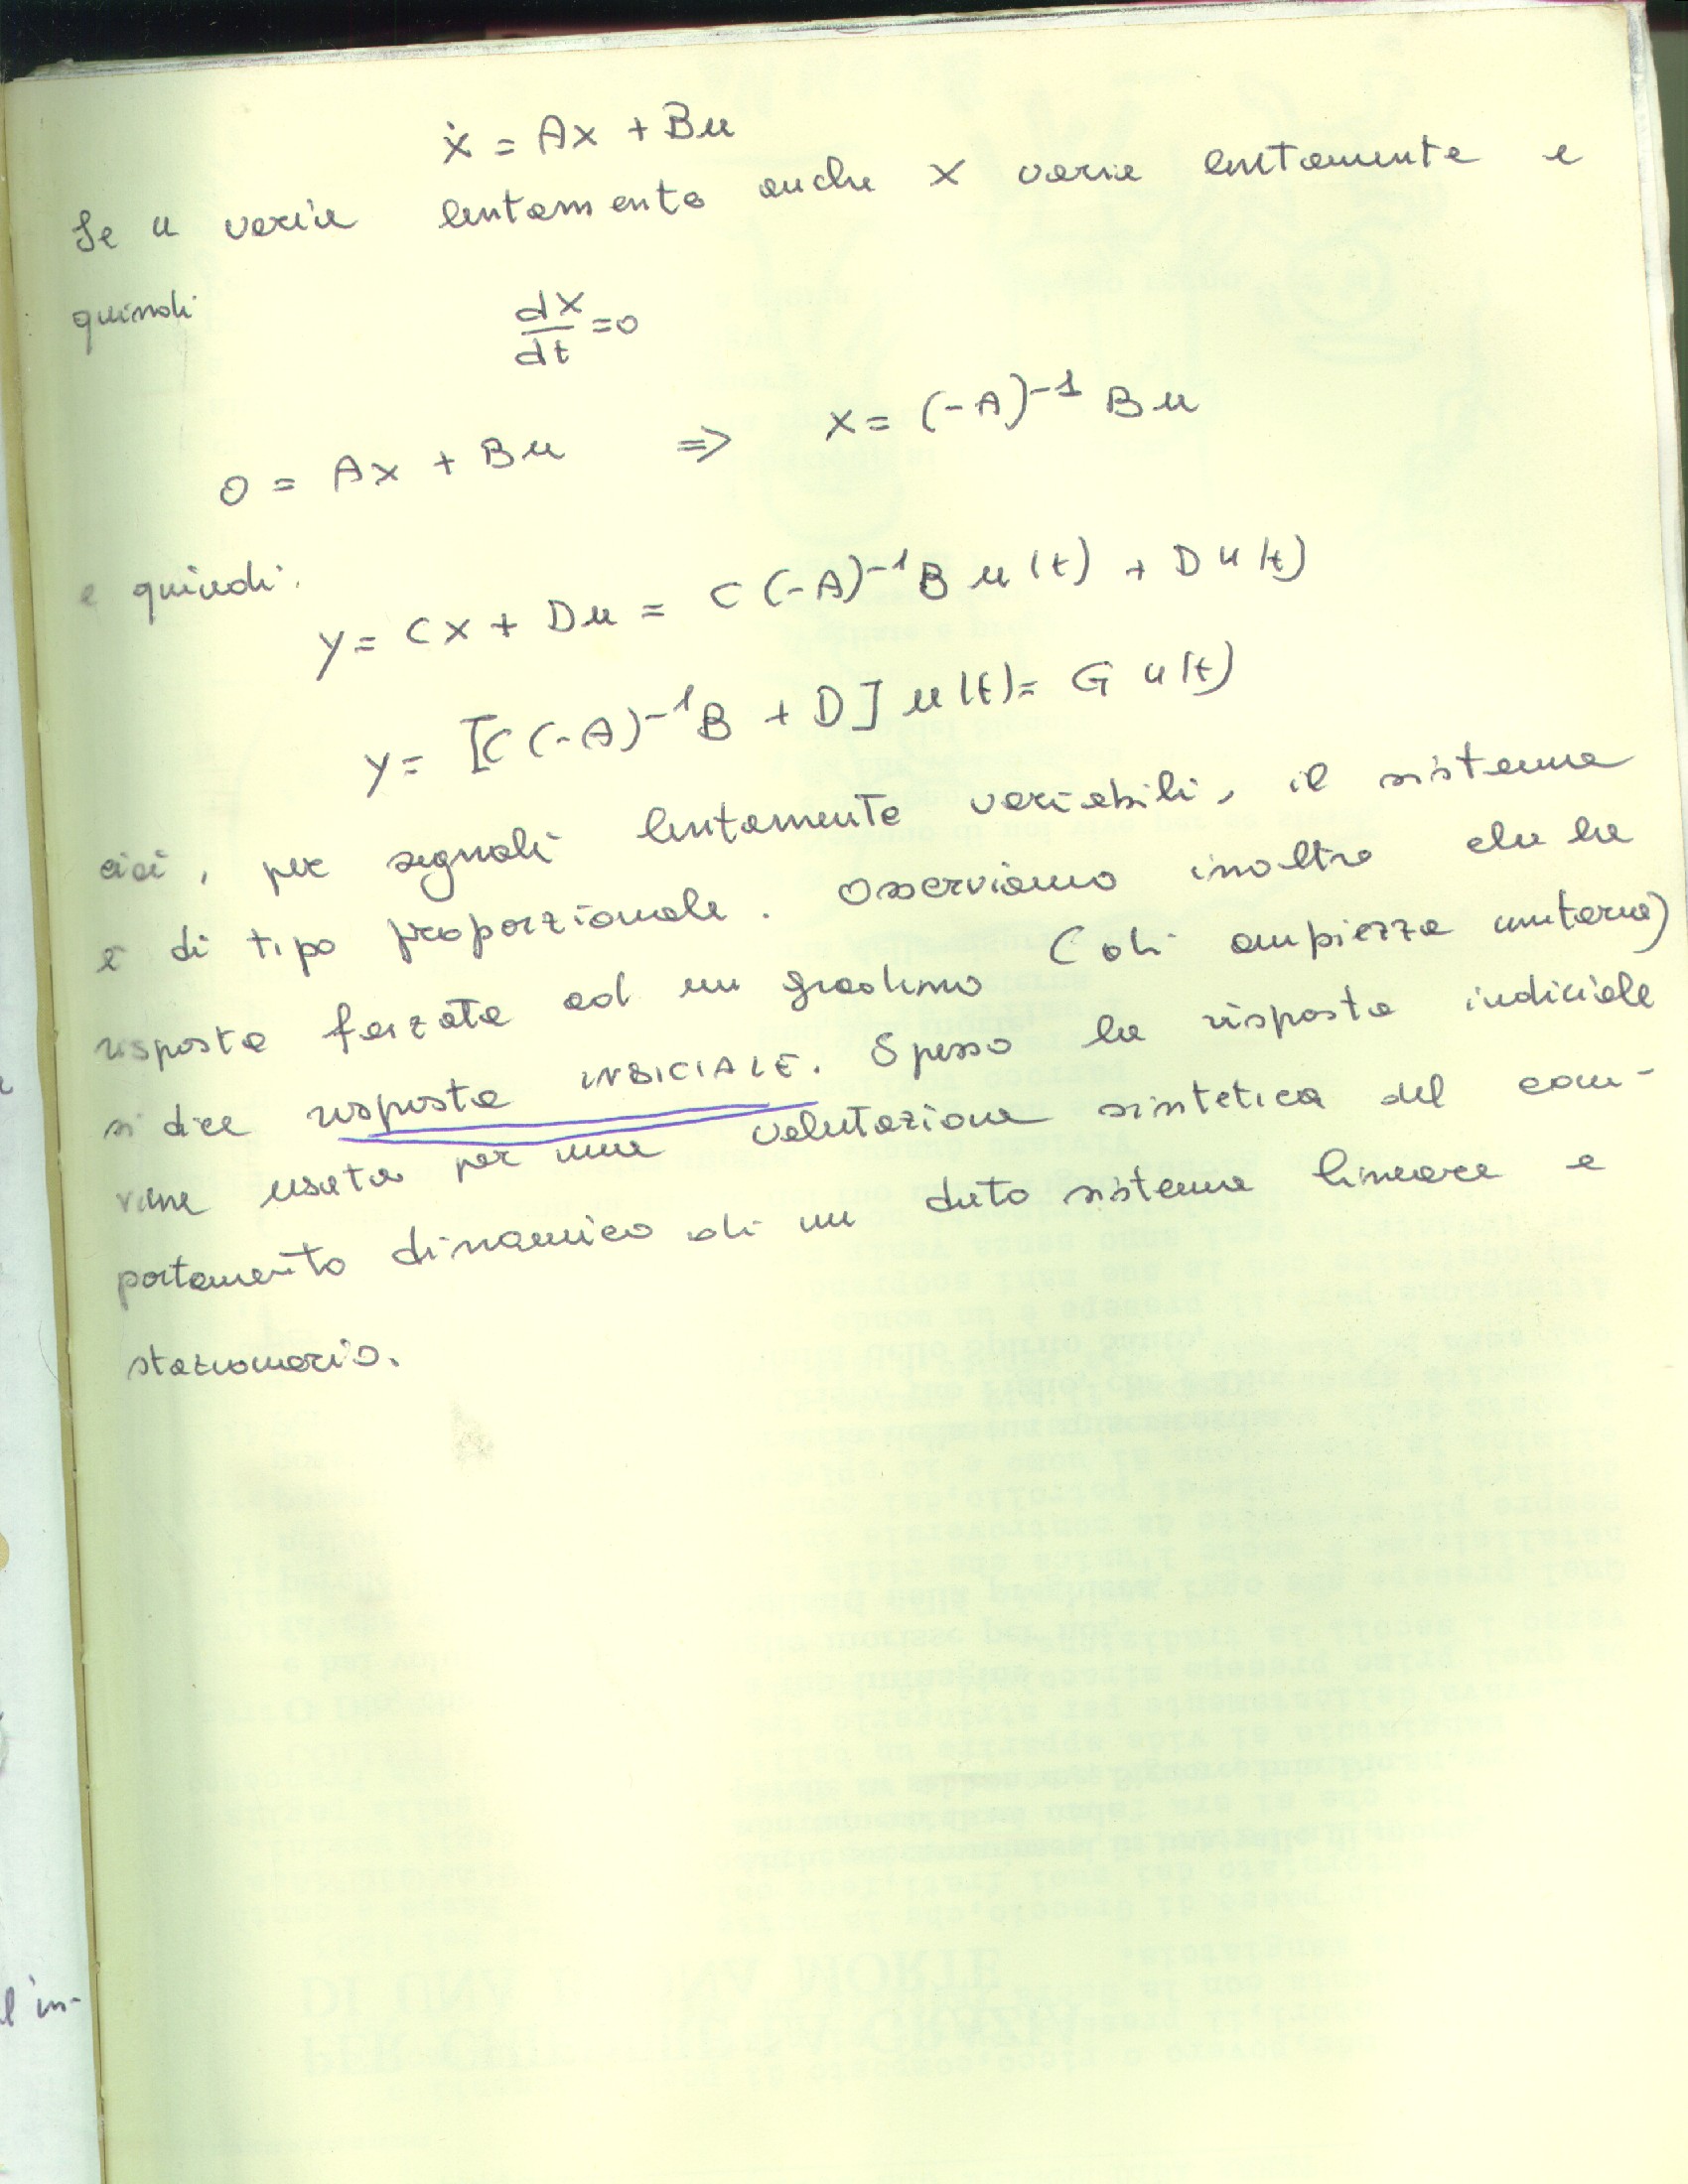 ẋ = Ax + Bu
Se u varia lentamente anche x varia lentamente e
quindi
dx/dt = 0
0 = Ax + Bu ⇒ x = (-A)^-1 Bu
e quindi.
y = Cx + Du = C(-A)^-1 B u(t) + D u(t)
y = [C(-A)^-1 B + D] u(t) = G u(t)
cioè, per segnali lentamente variabili, il sistema
è di tipo proporzionale. Osserviamo inoltre che la
risposta forzata ad un gradino (di ampiezza unitaria)
si dice risposta INDICIALE. Spesso la risposta indiciale
viene usata per una valutazione sintetica del com-
portamento dinamico di un dato sistema lineare e
stazionario.
l in-